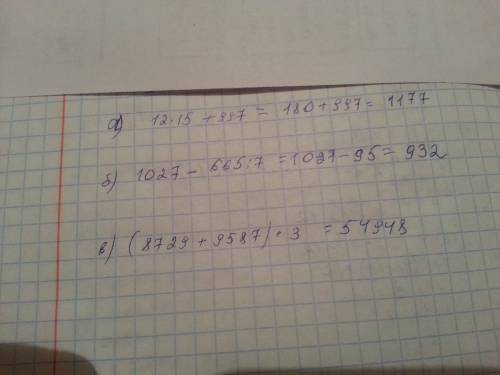 а) 12·15 + 997 = 180 + 997 = 1177
б) 1027 - 665:7 = 1027 - 95 = 932
в) (8729 + 9587) · 3 = 54948